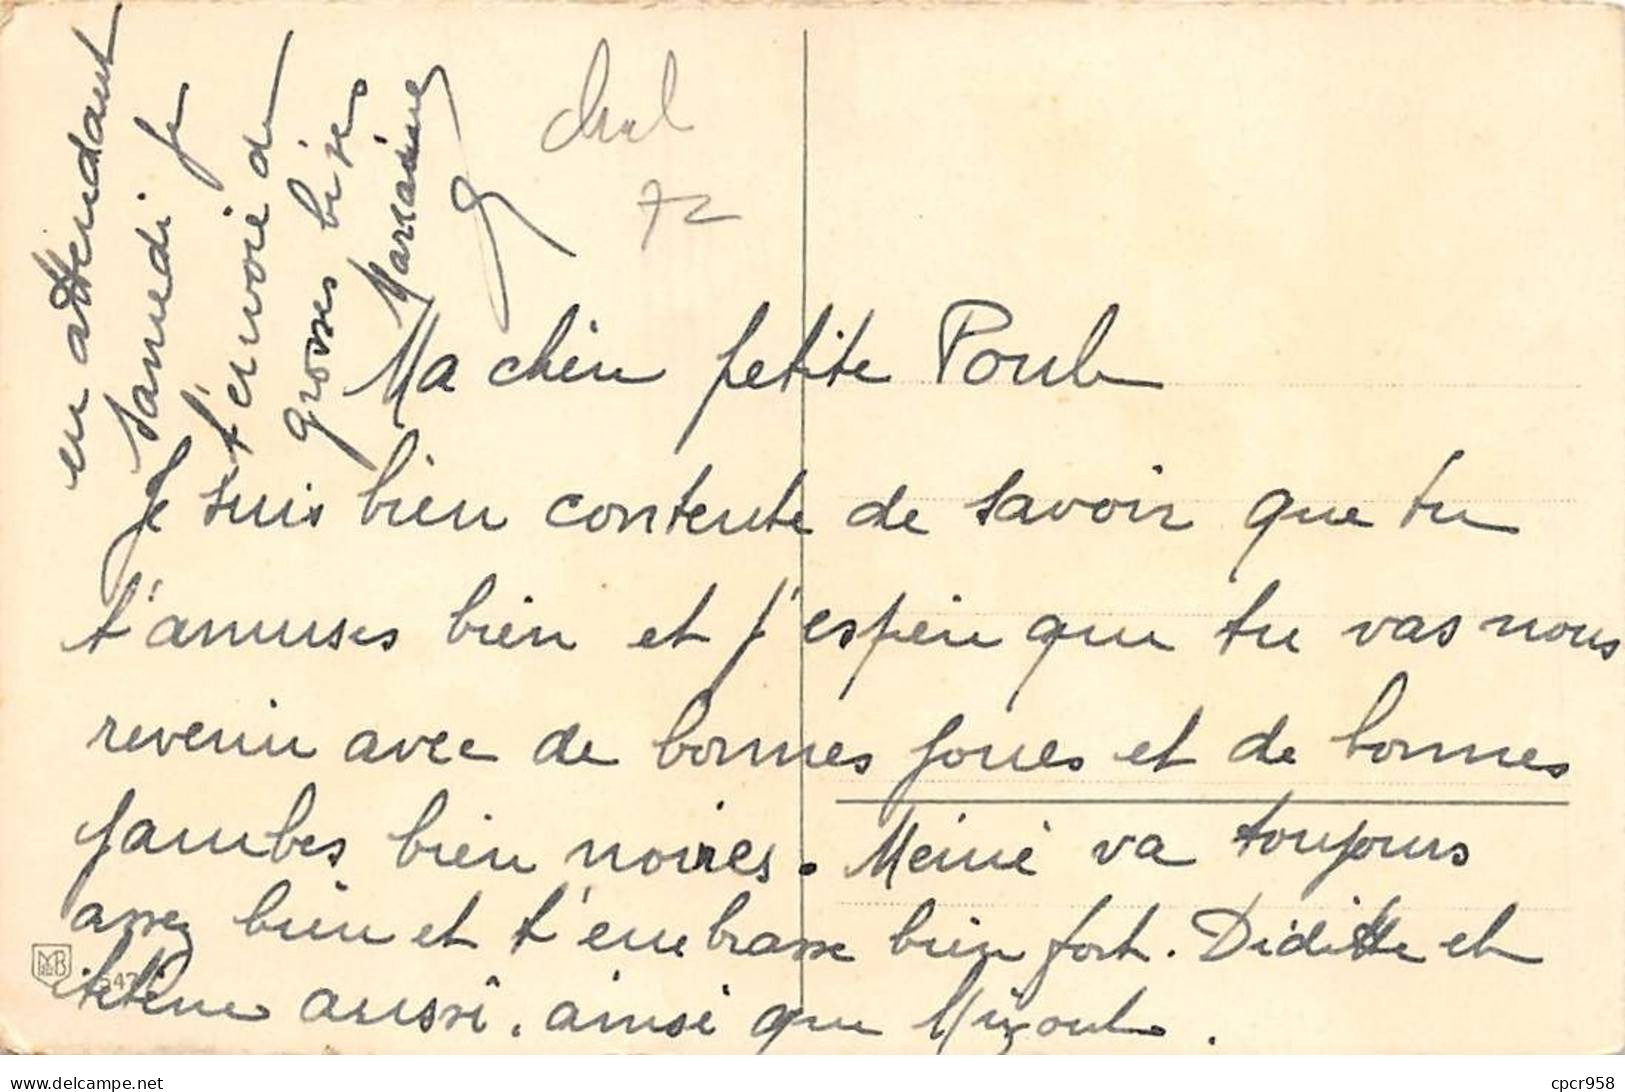 Ma chère petite Poule
Je suis bien contente de savoir que tu
t'amuses bien et j'espère que tu vas nous
revenir avec de bonnes joues et de bonnes
jambes bien noires. Mémé va toujours
assez bien et t'embrasse bien fort. Diditte et
aussi. ainsi que Mizoule.
en attendant
samedi je
t'envoie de
grosses bises
Marraine
72
MB
cpcr958